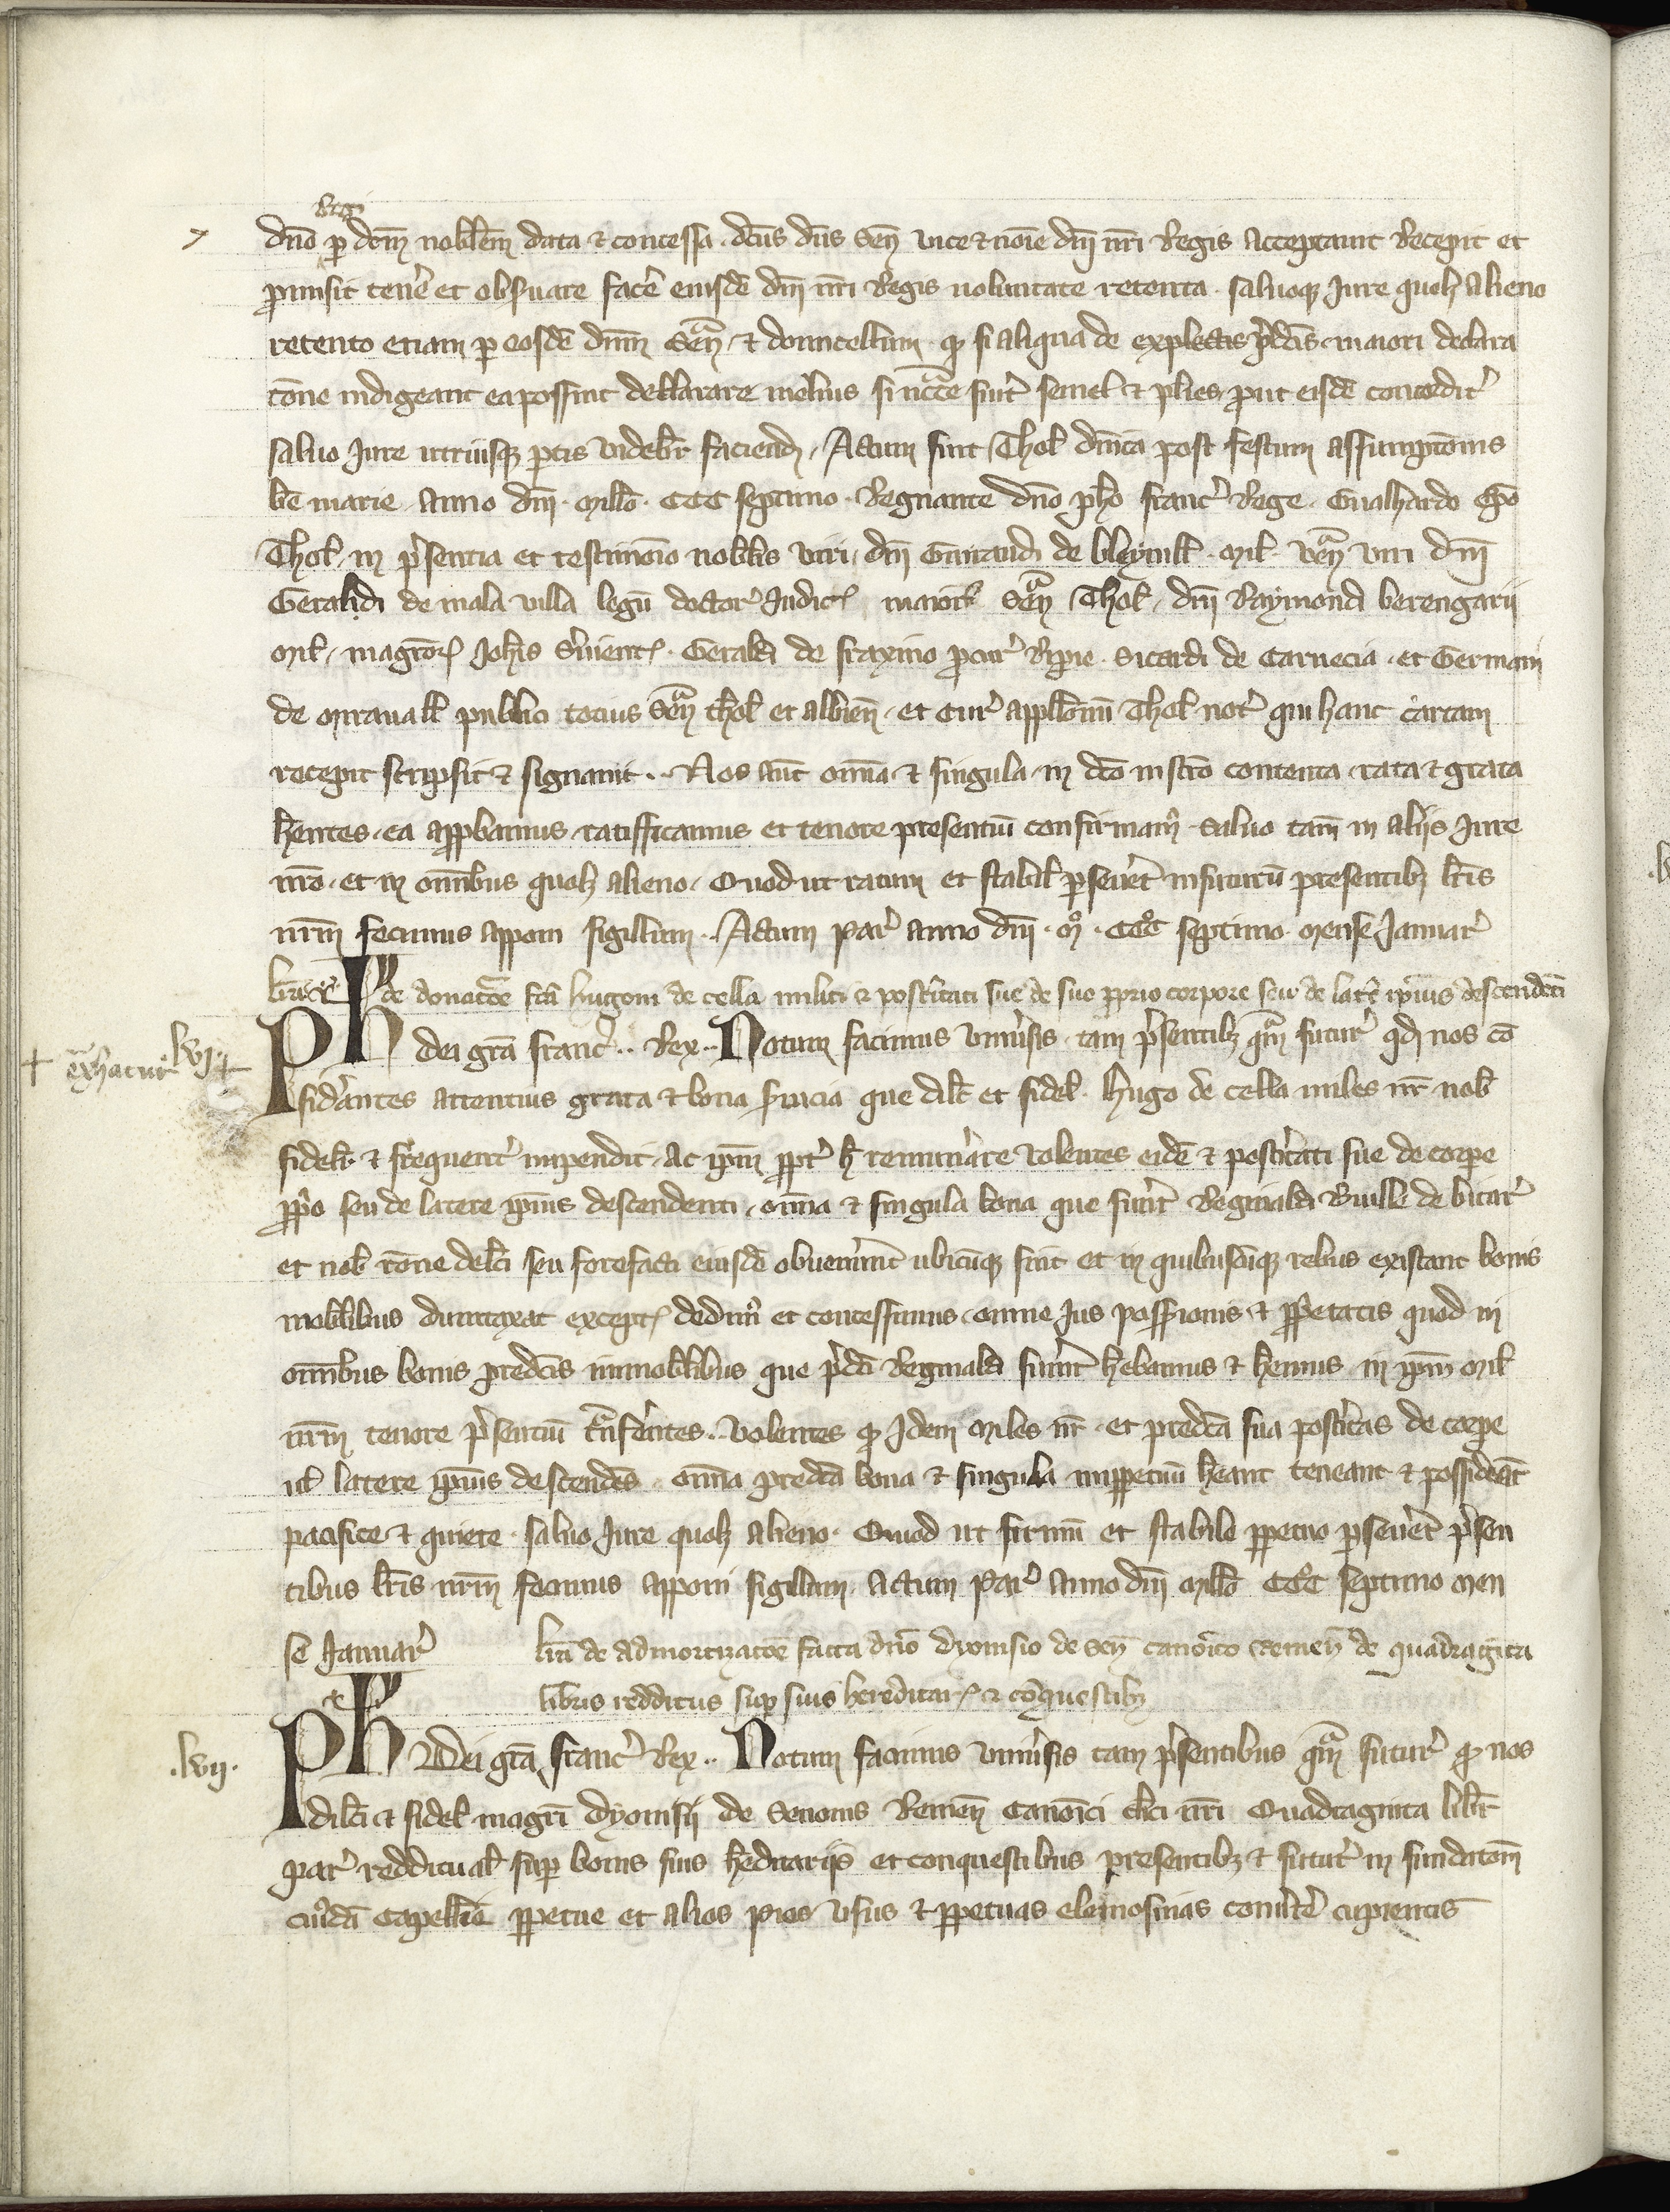 Regi
dño p dc̃m nobilem data ⁊ concessa. dc̃us dñs Señ vice ⁊ noĩe dñi nr̃i Regis acceptavit Recepit et
promisit tenẽ et observare facẽ eiusdẽ dñi nr̃i Regis voluntate retenta. salvoq iure quolȝ alieno
retento etiam p eosdẽ dñm Señ ⁊ domicellum. ꝙ si aliqua de expletis p̃dc̃is maiori declara
cõne indigeant ea possint declarare melius si nc̃c̃e fuit̃ semel ⁊ plies prout eisdẽ concordit̃
salvo Jure utriusq ptis videbit̃ faciend. Actum fuit Thol dñica post festum assumptõnis
bẽ marie. Anno dñi. Mill̃o. CCC septimo. Regnante dño ph̃o franc̃ Rege. Gualhardo ep̃o
Thol. in p̃sentia et testimoĩo nobilis viri. dñi Guiraudi de bleynill̃. mil̃. Veñ viri dñi
Geraldi de mala villa legũ doctor Judic̃ maioris Señ Thol. dñi Raymondi berengarii
mil̃. magror̃ Joh̃is S̃vient̃. Geraldi de fraxino procur̃ Ripie. Sicardi de Carnecia. et Germani
de mirauall̃ publici tocius Señ thol et albieñ. et cur̃ appllõnũ Thol not̃ qui hanc cartam
recepit scripsit ⁊ signavit.. Nos aũt oĩa ⁊ singula in dc̃o instr̃o contenta rata ⁊ grata
h̃entes. ea approbamus ratifficamus et tenore presentiũ confirmam̃. Salvo tam in aliis iure
nr̃o. et in omnibus quolȝ alieno. Quod ut ratum et stabil̃ psevet̃ infuturũ presentibȝ lr̃is
nr̃m fecimus apponi sigillum. Actum par̃ anno dñi. m̊. CCC̊ septimo mense Januar̃
lr̃a de donac̃oe fc̃a hugoni de cella militi ⁊ post̃itati sue de suo pprio corpore seu de lat̃e ip̃ius descendẽti
+ ext̃hatur lvj. +
Ph dei gr̃a franc̃.. Rex.. Notum facimus uniṽsis tam p̃sentibȝ qm̃ futur̃ qd̃ nos cõ
sid̃antes attentius grata ⁊ bona s̃vicia que dilc̃ et fidel. hugo de cella miles nr̃ nob̃
fidelit̃ ⁊ frequent̃ impendit. Ac ip̃m ppt̃ h̃ remun̄are volentes eidẽ ⁊ post̃itati sue de corpe
pp̃o seu de latere ip̃ius descendenti. om̃ia ⁊ singula bona que fũit̃ Reginaldi Ruille de bitar̃
et nob̃ rõne delc̃i seu forefacti eiusdẽ obvener̃nt ubicũq sint et in quibuscũq rebus existant bonis
mobilibus dumtaxat except̃ dedim̃ et concessimus. omne ius possessionis ⁊ pp̃etatis quod in
omnibus bonis predc̃is immobilibus que p̃dc̃i Reginaldi fũit̃ h̃ebamus ⁊ h̃emus in ip̃m mil̃
nr̃m tenore p̃sentiũ tñsf̃entes.. Volentes ꝙ idem miles nr̃. et predc̃a sua post̃itas de corpe
ul̃ latere ip̃ius descendẽs. om̃ia predc̃a bona ⁊ singula imppetuũ h̃eant teneant ⁊ possideãt
pacifice ⁊ quiete. salvo iure quolȝ alieno. Quod ut firmũ et stabile ppetuo psevet̃ p̃sen
tibus lr̃is nr̃m fecimus apponi sigillum. Actum par̃ Anno dñi mill̃o CCC̊ septimo men
se Januar̃
lr̃a de admortizac̃oe facta dño dyonisio de Señ canoĩco Remeñ de quadragĩta
libris redditus sup suis hereditar̃ ⁊ cõquestibȝ
.lvij.
Ph Dei gr̃a franc̃ Rex.. Notum facimus uniṽsis tam p̃sentibus qm̃ futur̃ ꝙ nos
dilc̃i ⁊ fidel magr̃i dyonisii de Senonis Remeñ canoĩci cl̃ici nr̃i Quadraginta libr̃
par̃ reddituaĺ sup bonis suis heditariis et conquestibus presentibȝ ⁊ futur̃ in fundatõm
cuiusdã capell̃ie ppetue et alios pios usus ⁊ ppetuas elemosinas conv̄tẽ cupientis